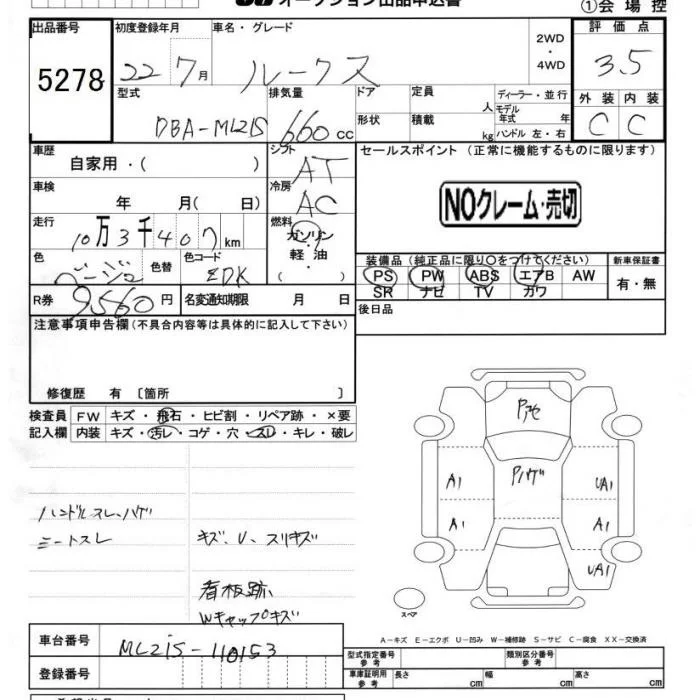 オークション出品申込書
①会場控
出品番号 初度登録年月 車名・グレード 2WD ・ 4WD 評価点
5278 22 7月 ルークス 3.5
型式 排気量 ドア 定員 人 ディーラー・並行 外装 内装
DBA-ML21S 660 CC 形状 積載 kg モデル年式 年 ハンドル 左・右 C C
車歴 自家用・( ) シフト AT セールスポイント (正常に機能するものに限ります)
車検 年 月( 日) 冷房 AC NOクレーム・売切
走行 10万3千407km 燃料 ガソリン
色 ベージュ 色替 色コード ZDK 軽油 ・ 装備品 (純正品に限り○をつけてください) 新車保証書
PS PW ABS エアB AW 有・無
R券 9560円 名変通知期限 月 日 SR ナビ TV カワ
注意事項申告欄(不具合内容等は具体的に記入して下さい) 後日品
修復歴 有 〔箇所 〕
検査員 FW キズ・飛石・ヒビ割・リペア跡・×要
記入欄 内装 キズ・汚レ・コゲ・穴・スレ・キレ・破レ
Pアセ
Pハゲ
A1 UA1
A1 A1
UA1
ハンドルスレ、ハゲ
シートスレ キズ、U、スリキズ
看板跡
Wキャップキズ
スペア
A－キズ E－エクボ U－凹み W－補修跡 S－サビ C－腐食 XX－交換済
車台番号 ML21S-110153
型式指定番号 参考 類別区分番号 参考
登録番号 車庫証明用 参考 長さ cm 幅 cm 高さ cm